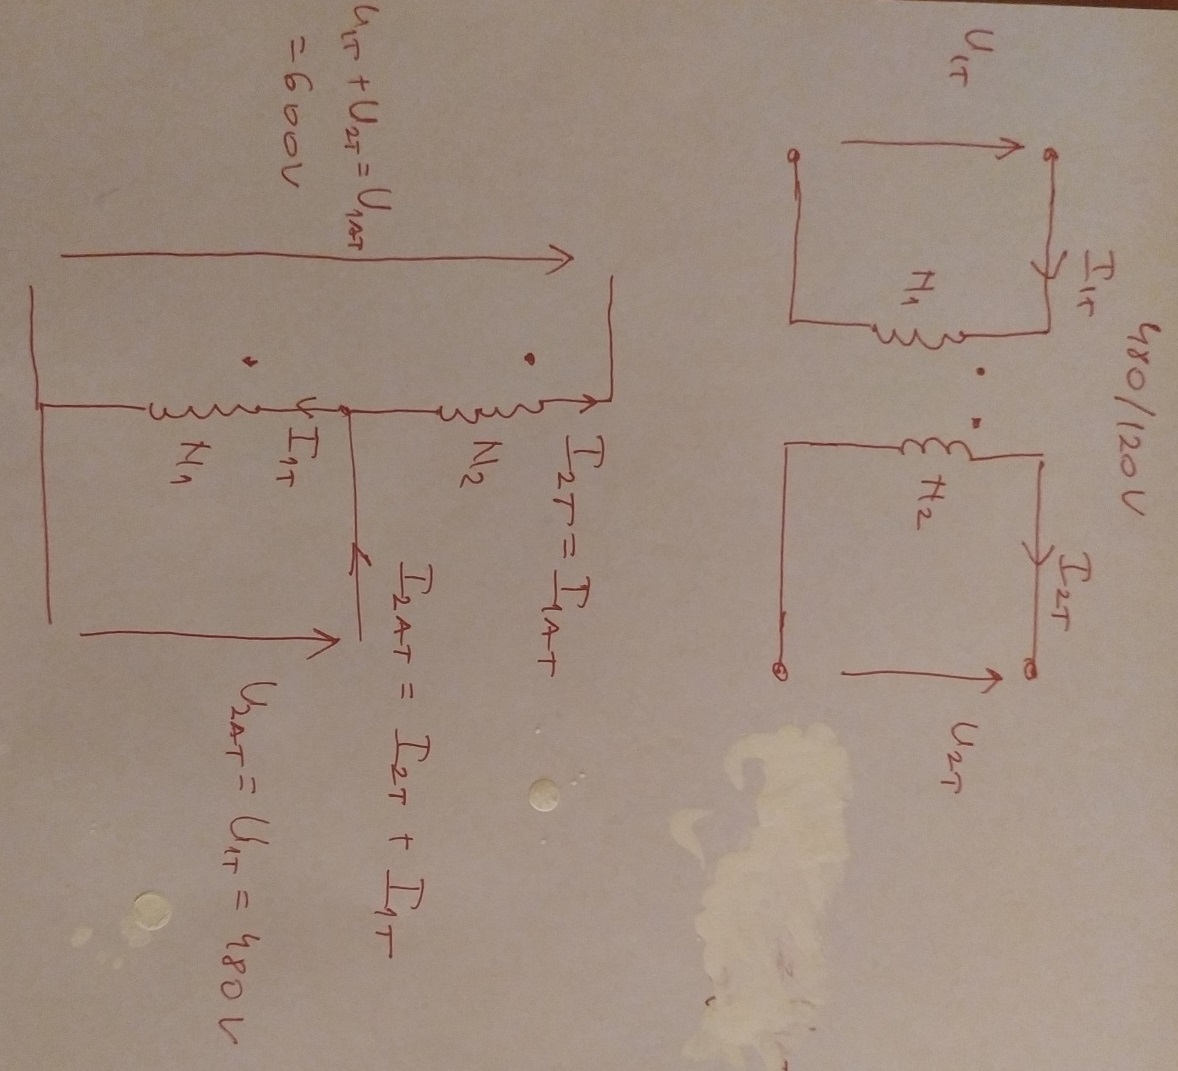 480/120V
U1T
I1T
N1
N2
I2T
U2T
U1T + U2T = U1AT
= 600V
I2T = I1AT
N2
I1T
N1
I2AT = I2T + I1T
U2AT = U1T = 480V